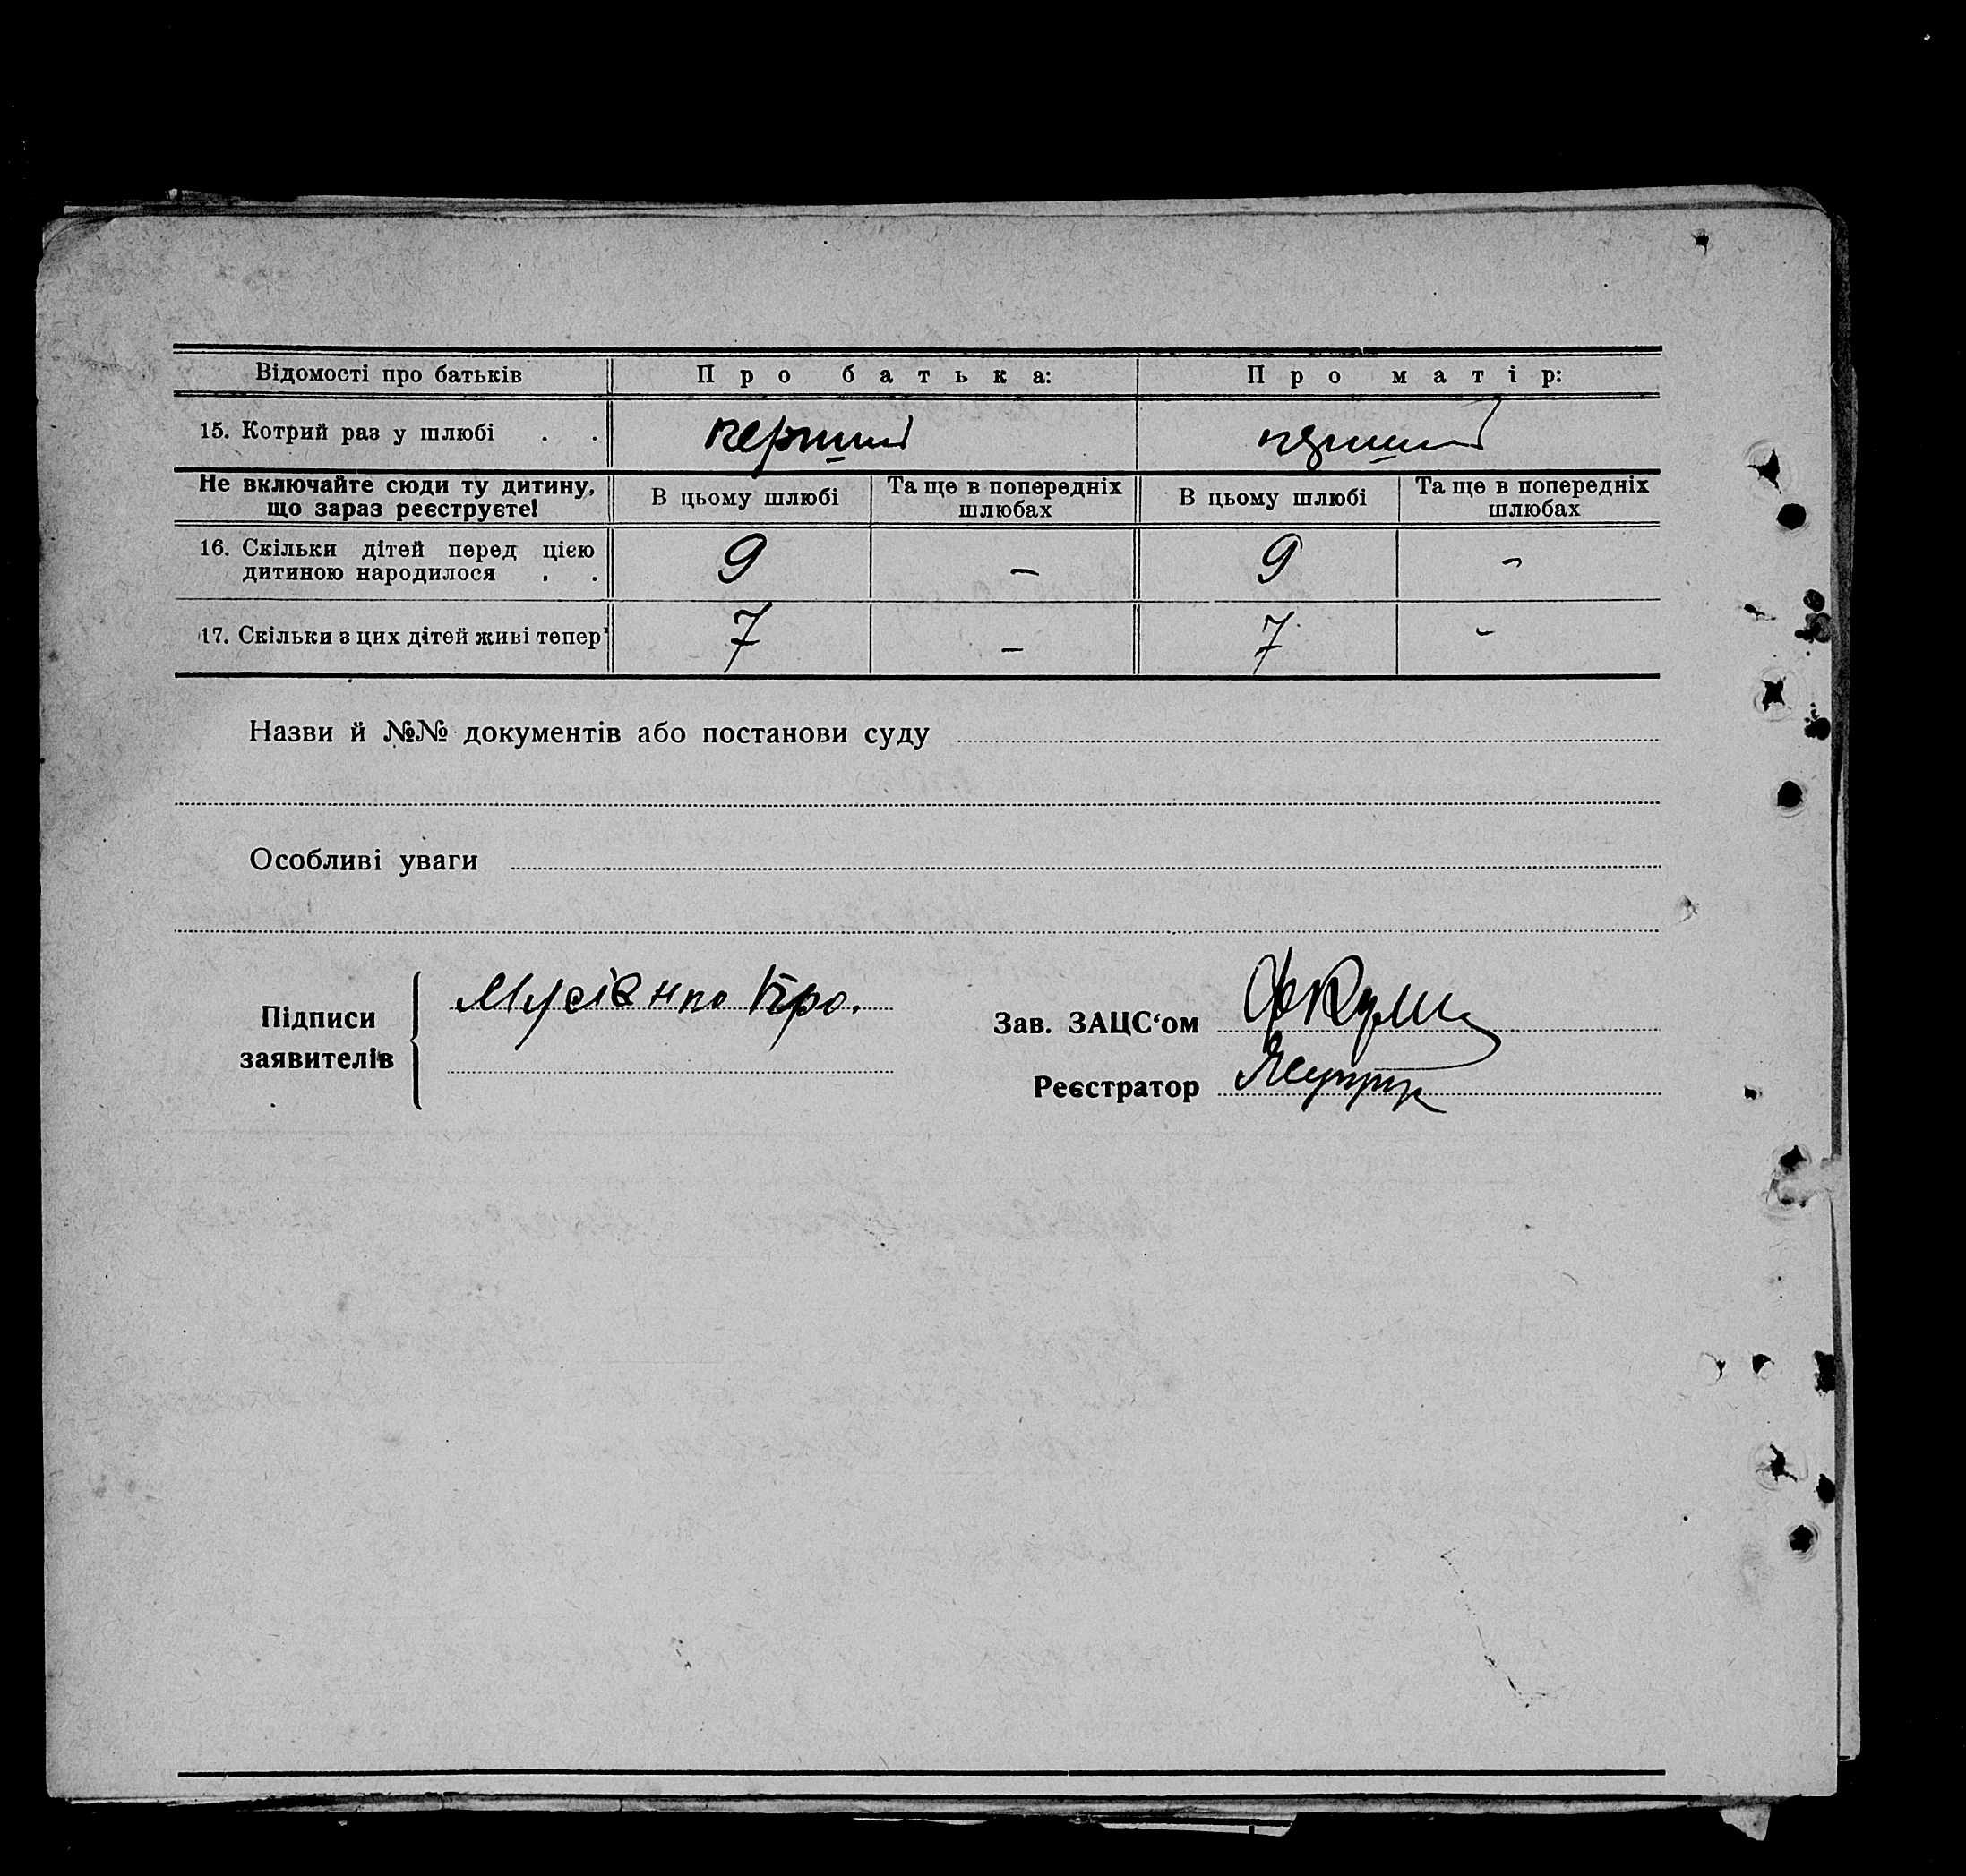 Відомості про батьків Про батька: Про матір:
15. Котрий раз у шлюбі . . перший перший
Не включайте сюди ту дитину, що зараз реєструєте! В цьому шлюбі Та ще в попередніх шлюбах В цьому шлюбі Та ще в попередніх шлюбах
16. Скільки дітей перед цією
дитиною народилося . . 9 – 9 –
17. Скільки з цих дітей живі тепер 7 – 7 –
Назви й №№ документів або постанови суду
Особливі уваги
Підписи
заявителів
Зав. ЗАЦС‘ом
Реєстратор